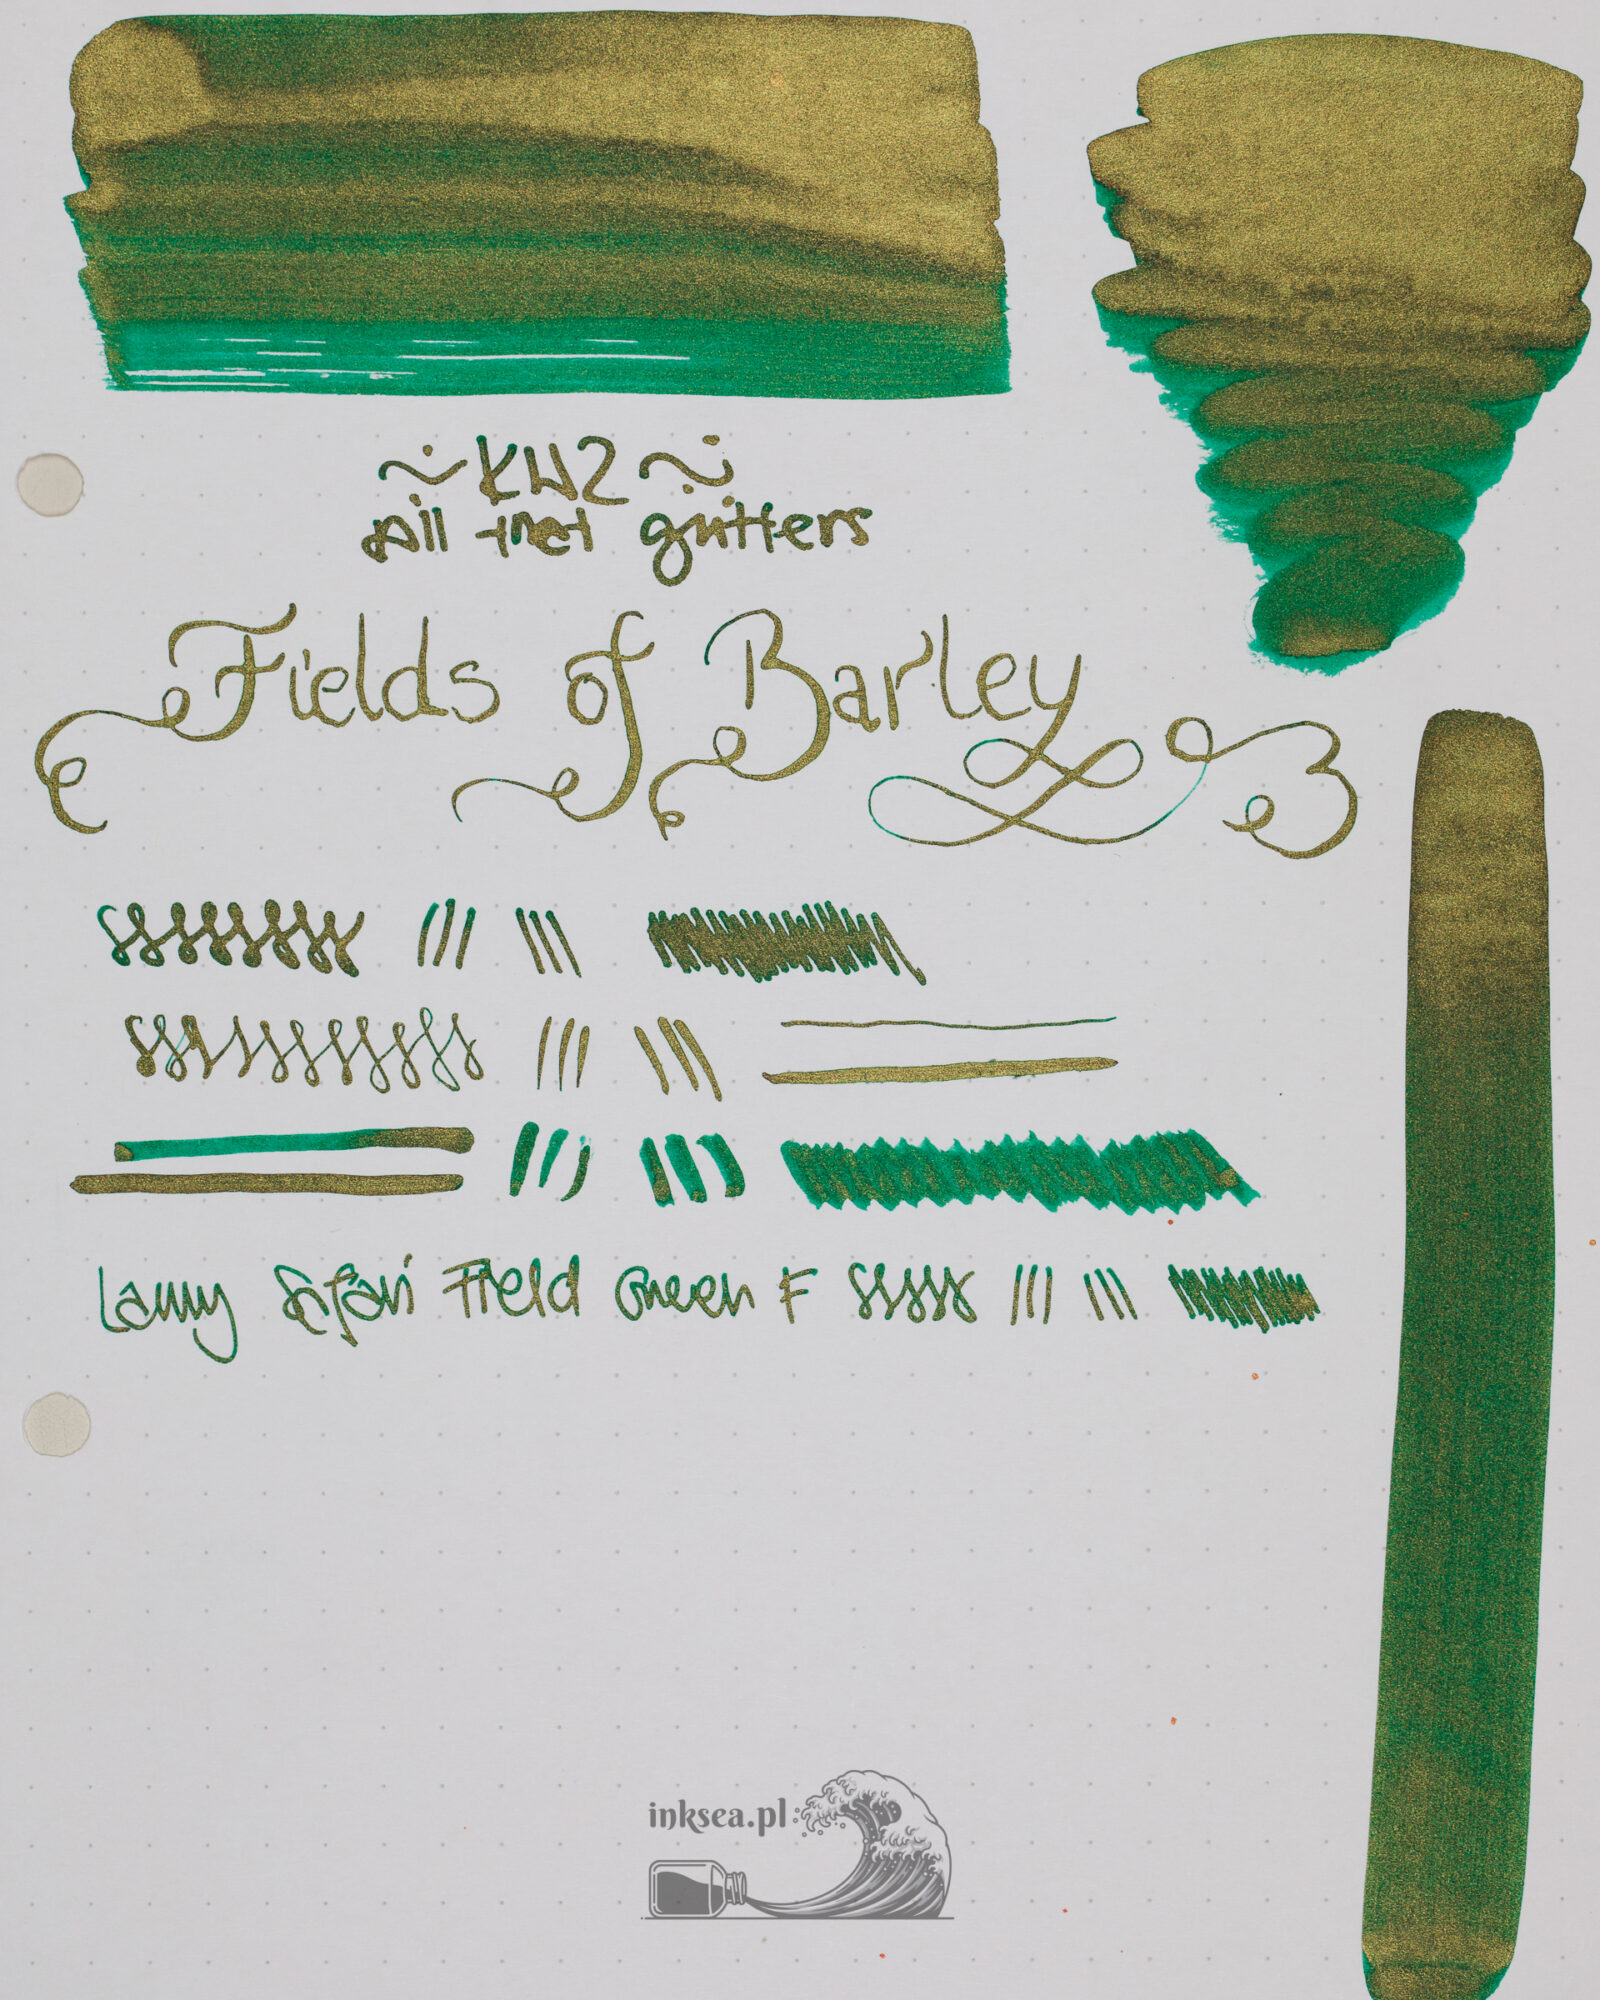 ~ KWZ ~
All that glitters
Fields of Barley
Lamy Safari Field Green F
inksea.pl